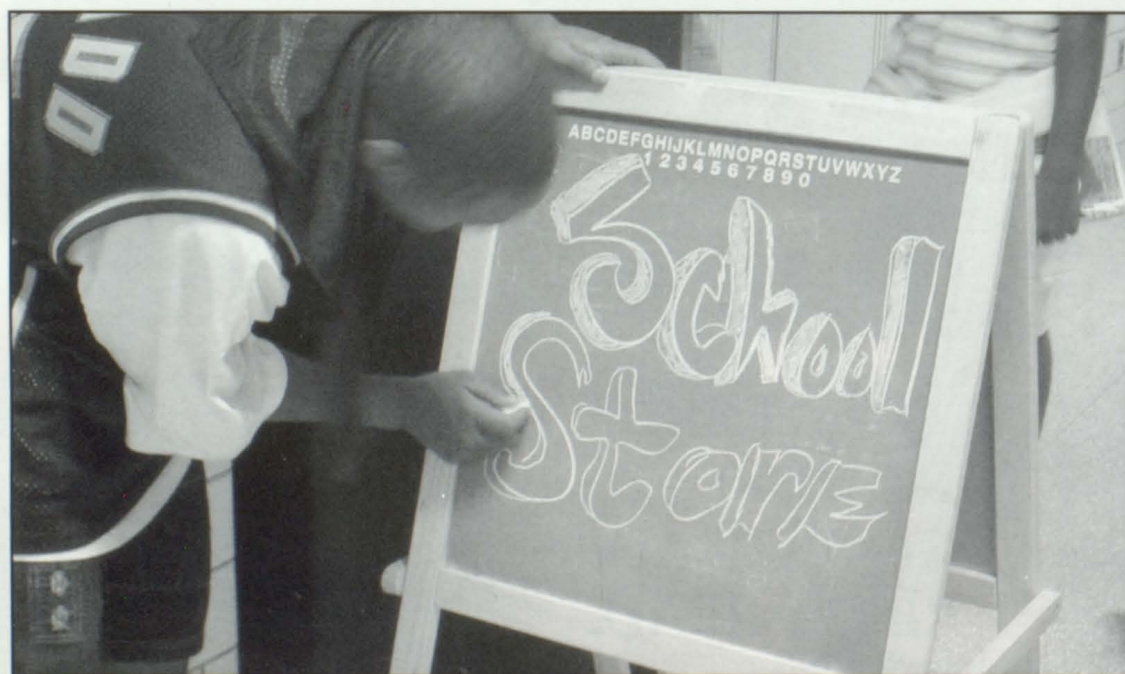 ABCDEFGHIJKLMNOPQRSTUVWXYZ
1234567890
School
Store